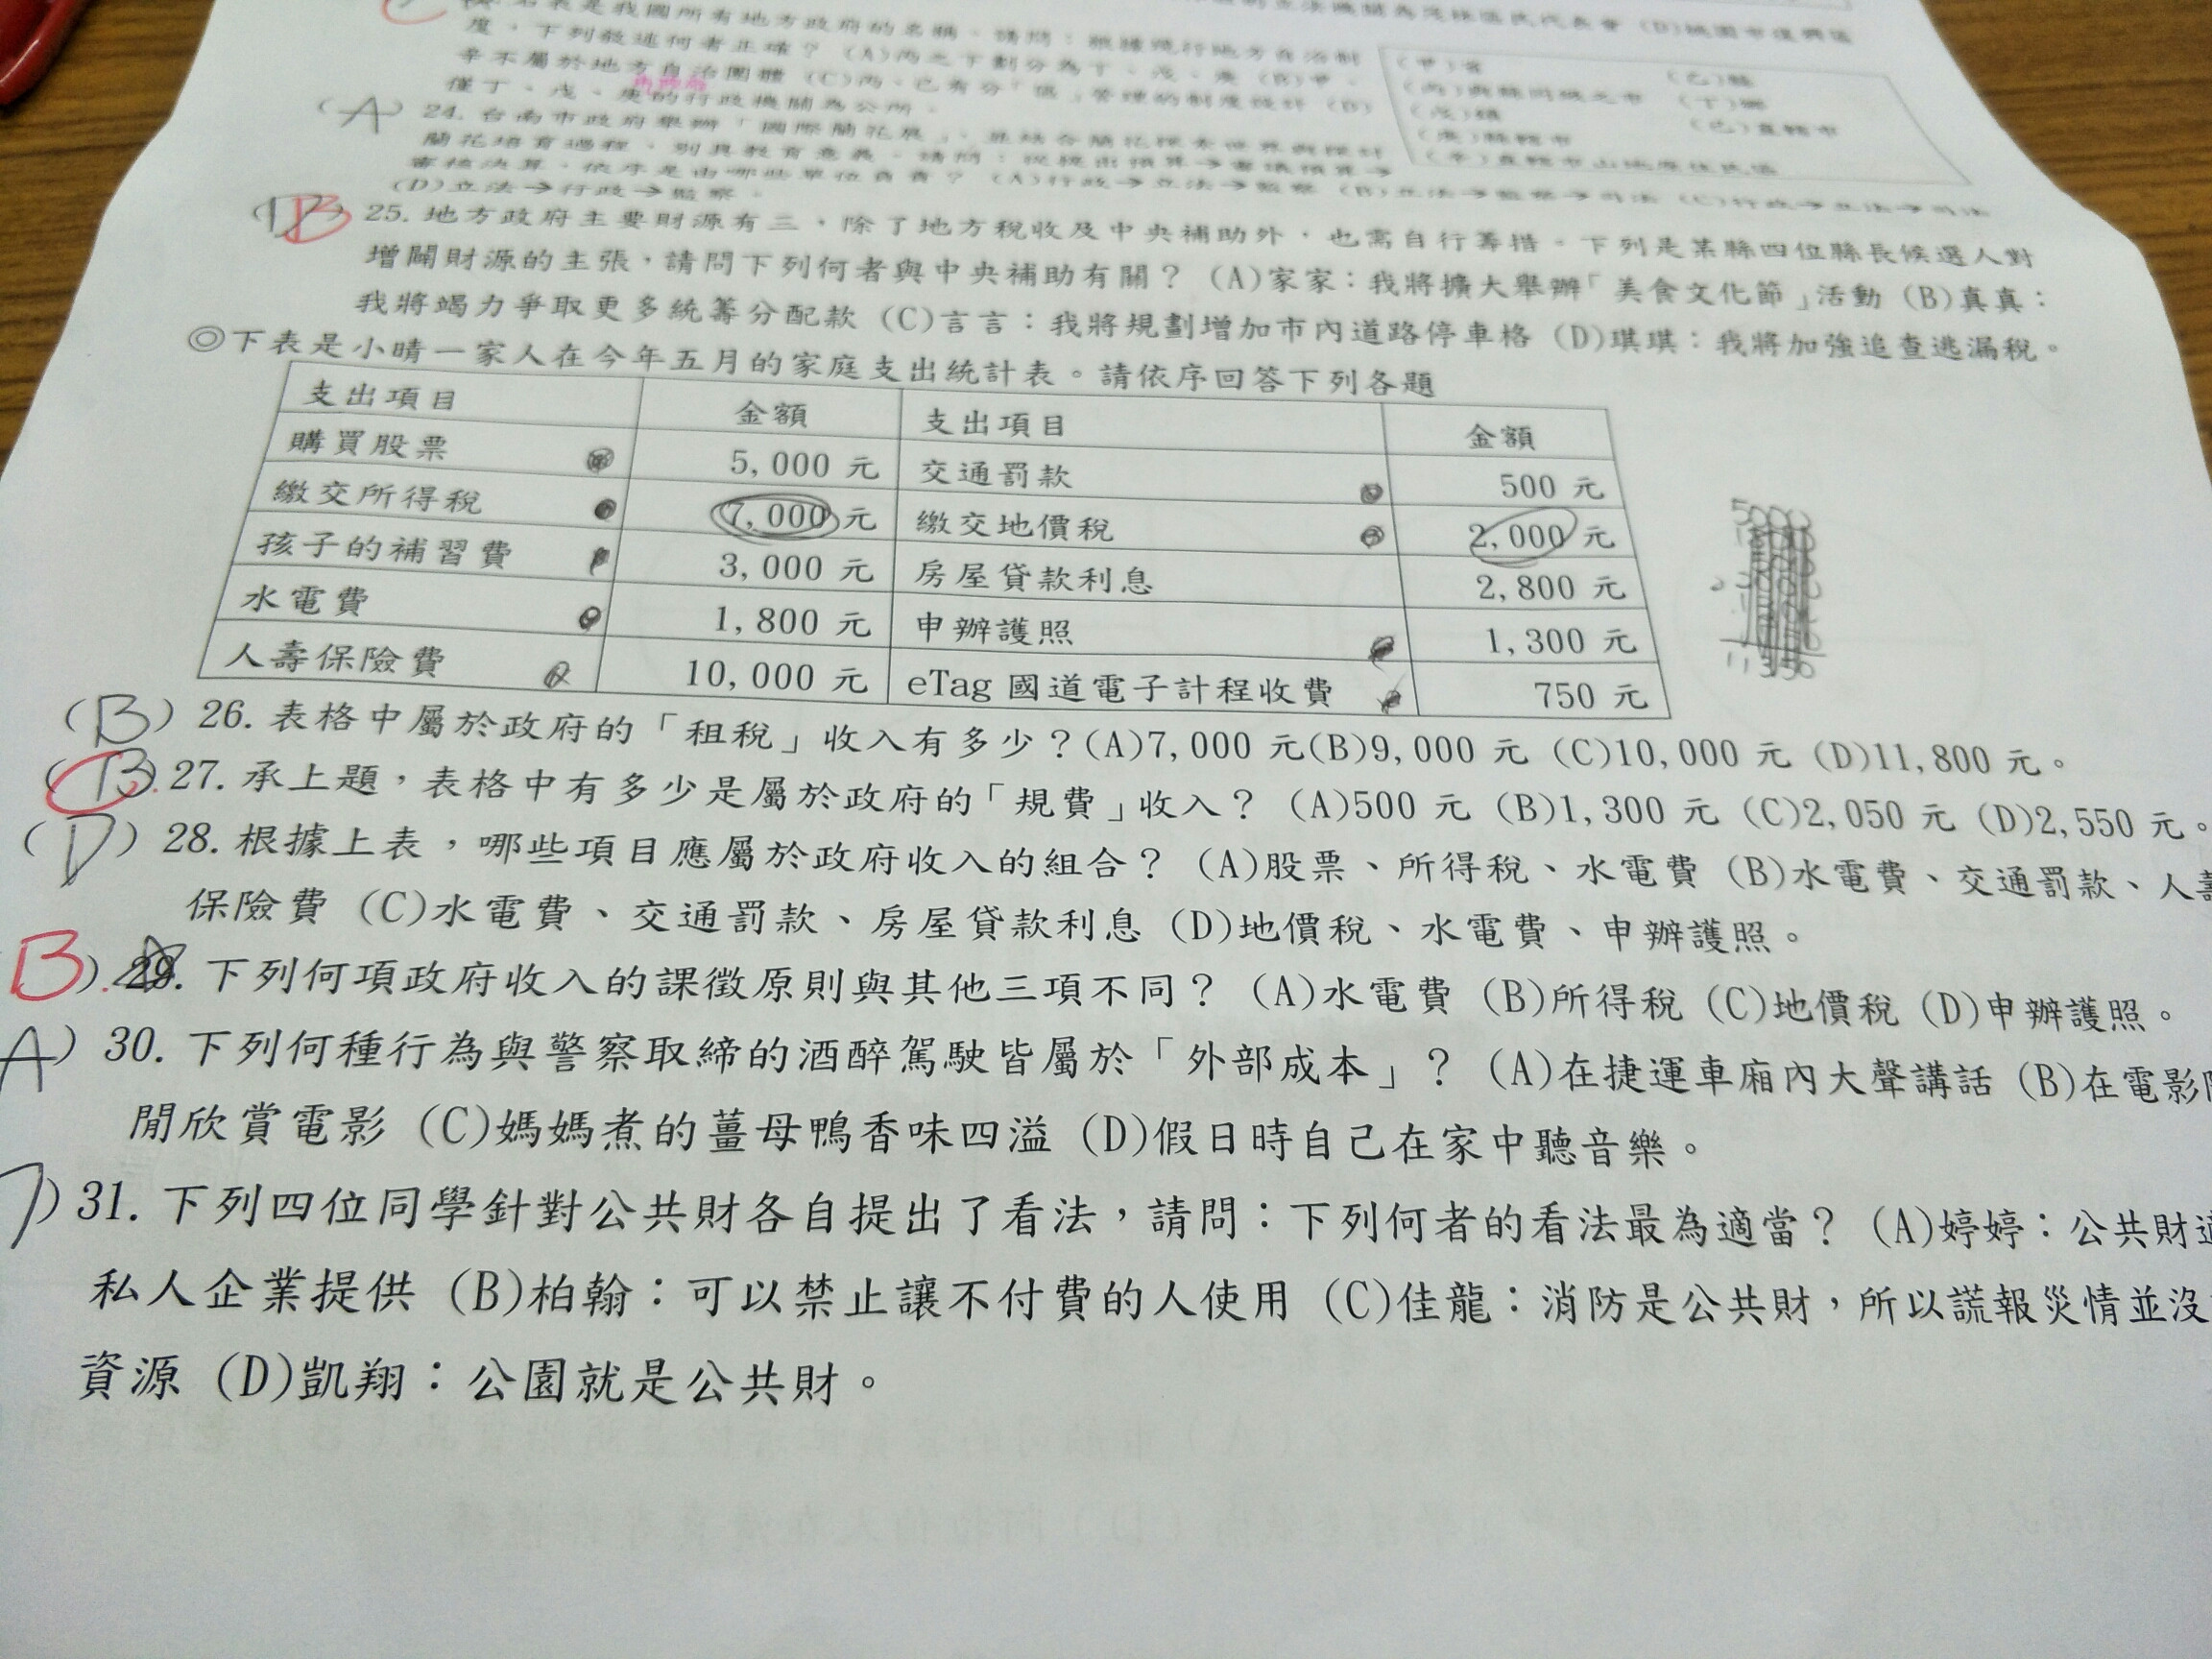 右表是我國所有地方政府的名稱。請問:根據現行地方自治制
度,下列敘述何者正確? (A)丙之下劃分為丁、戊、庚 (B)甲、
辛不屬於地方自治團體 (C)丙、己有分「區」管理的制度設計 (D)
僅丁、戊、庚的行政機關為公所。
(甲)省 (乙)縣
(丁)鄉
(戊)鎮 (己)直轄市
(庚)縣轄市
(辛)直轄市山地原住民區
(A) 24. 台南市政府舉辦「國際蘭花展」,
蘭花培育過程,別具教育意義。請問:從提出預算→審議預算→
審核決算,依序是由哪些單位負責? (A)行政→立法→監察 (B)立法→監察→司法 (C)行政→立法→司法
(D)立法→行政→監察。
B 25. 地方政府主要財源有三,除了地方稅收及中央補助外,也需自行籌措。下列是某縣四位縣長候選人對
增闢財源的主張,請問下列何者與中央補助有關? (A)家家:我將擴大舉辦「美食文化節」活動 (B)真真:
我將竭力爭取更多統籌分配款 (C)言言:我將規劃增加市內道路停車格 (D)琪琪:我將加強追查逃漏稅。
◎下表是小晴一家人在今年五月的家庭支出統計表。請依序回答下列各題
支出項目 金額 支出項目 金額
購買股票 5,000 元 交通罰款 500 元
繳交所得稅 7,000 元 繳交地價稅 2,000 元
孩子的補習費 3,000 元 房屋貸款利息 2,800 元
水電費 1,800 元 申辦護照 1,300 元
人壽保險費 10,000 元 eTag 國道電子計程收費 750 元
(B) 26. 表格中屬於政府的「租稅」收入有多少?(A)7,000 元(B)9,000 元 (C)10,000 元 (D)11,800 元。
(C) 27. 承上題,表格中有多少是屬於政府的「規費」收入? (A)500 元 (B)1,300 元 (C)2,050 元 (D)2,550 元。
(D) 28. 根據上表,哪些項目應屬於政府收入的組合? (A)股票、所得稅、水電費 (B)水電費、交通罰款、人壽
保險費 (C)水電費、交通罰款、房屋貸款利息 (D)地價稅、水電費、申辦護照。
B) 29. 下列何項政府收入的課徵原則與其他三項不同? (A)水電費 (B)所得稅 (C)地價稅 (D)申辦護照。
A) 30. 下列何種行為與警察取締的酒醉駕駛皆屬於「外部成本」? (A)在捷運車廂內大聲講話 (B)在電影
閒欣賞電影 (C)媽媽煮的薑母鴨香味四溢 (D)假日時自己在家中聽音樂。
) 31. 下列四位同學針對公共財各自提出了看法,請問:下列何者的看法最為適當? (A)婷婷:公共財
私人企業提供 (B)柏翰:可以禁止讓不付費的人使用 (C)佳龍:消防是公共財,所以謊報災情並沒
資源 (D)凱翔:公園就是公共財。